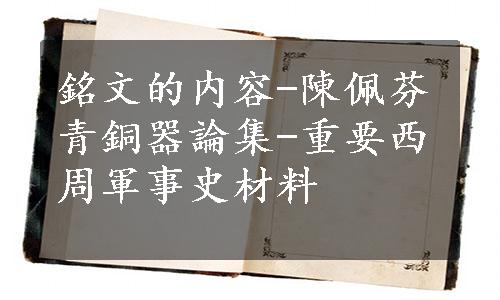 銘文的内容-陳佩芬
青銅器論集-重要西
周軍事史材料